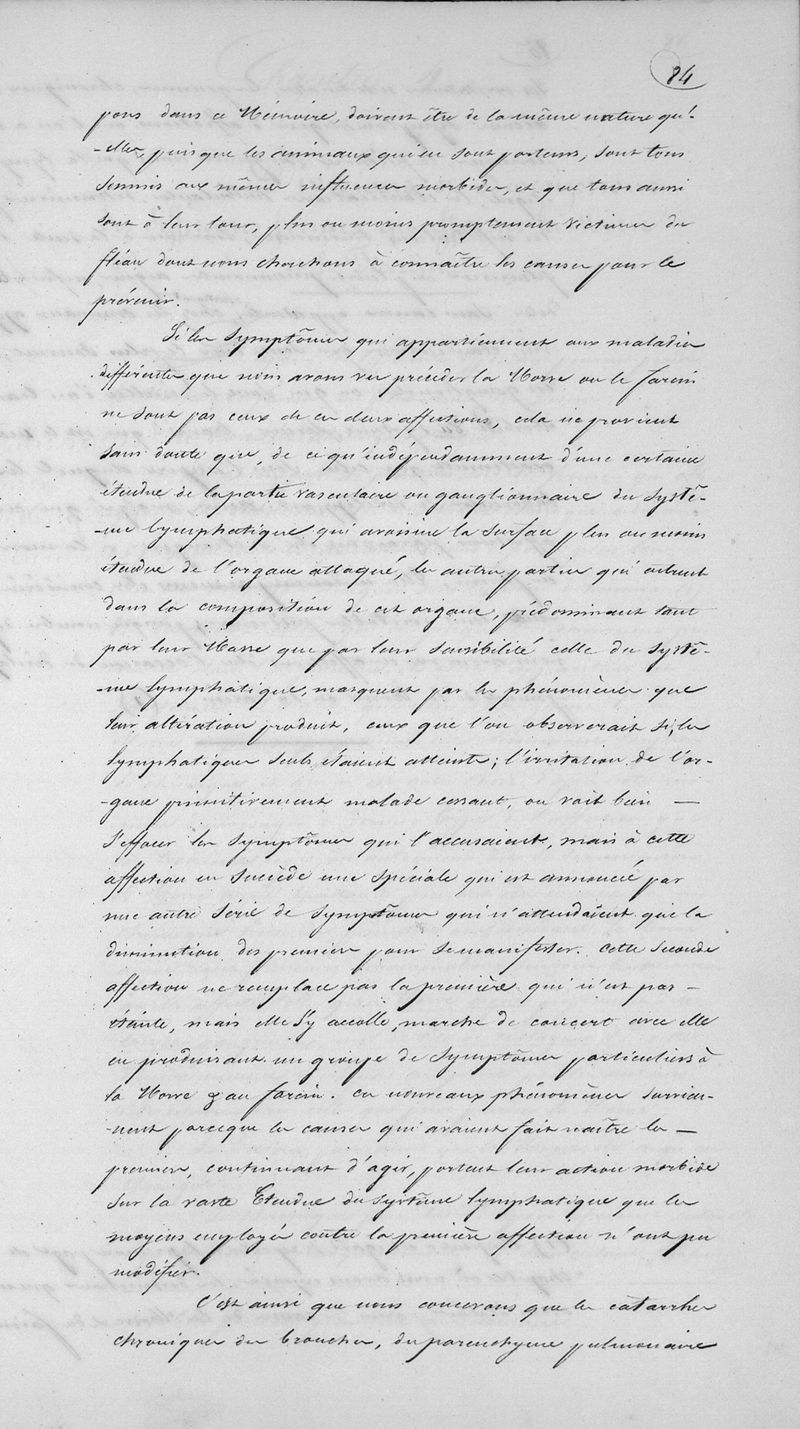 84
pons dans ce Mémoire, doivent être de la même nature qu'-
-elles, puisque les animaux qui en sont porteurs, sont tous
soumis aux mêmes influences morbides, et que tous aussi
sont à leur tour, plus ou moins promptement victimes du
fléau dont nous cherchons à connaître les causes pour le
prévenir.
Si les symptômes qui appartiennent aux maladies
différentes que nous avons vu précéder la Morve ou le farcin
ne sont pas ceux de ces deux affections, cela ne provient
sans doute que, de ce qu'indépendamment d'une certaine
étendue de la partie vasculaire ou ganglionnaire du systê-
-me lymphatique qui avoisine la surface plus ou moins
étendue de l'organe attaqué, les autres parties qui entrent
dans la composition de cet organe, prédominant tant
par leur Masse que par leur sensibilité celle du systê-
-me lymphatique, masquent par les phénomènes que
leur altération produit, ceux que l'on observerait si, les
lymphatiques seuls étaient atteints; l'irritation de l'or-
-gane primitivement malade cessant, on voit bien —
s'effacer les symptômes qui l'accusaient, mais à cette
affection en succède une spéciale qui est annoncée par
une autre série de symptômes qui n'attendaient que la
diminution des premiers pour se manifester. cette seconde
affection ne remplace pas la première qui n'est pas —
éteinte, mais elle s'y accolle, marche de concert avec elle
en produisant un groupe de symptômes particuliers à
la Morve & au farcin. ces nouveaux phénomènes survien-
-nent parceque les causes qui avaient fait naître les —
premiers, continuant d'agir, portent leur action morbide
sur la vaste Etendue du système lymphatique que les
moyens employés contre la première affection n'ont pu
modifier.
C'est ainsi que nous concevons que les catarrhes
chroniques des bronches, du parenchyme pulmonaire